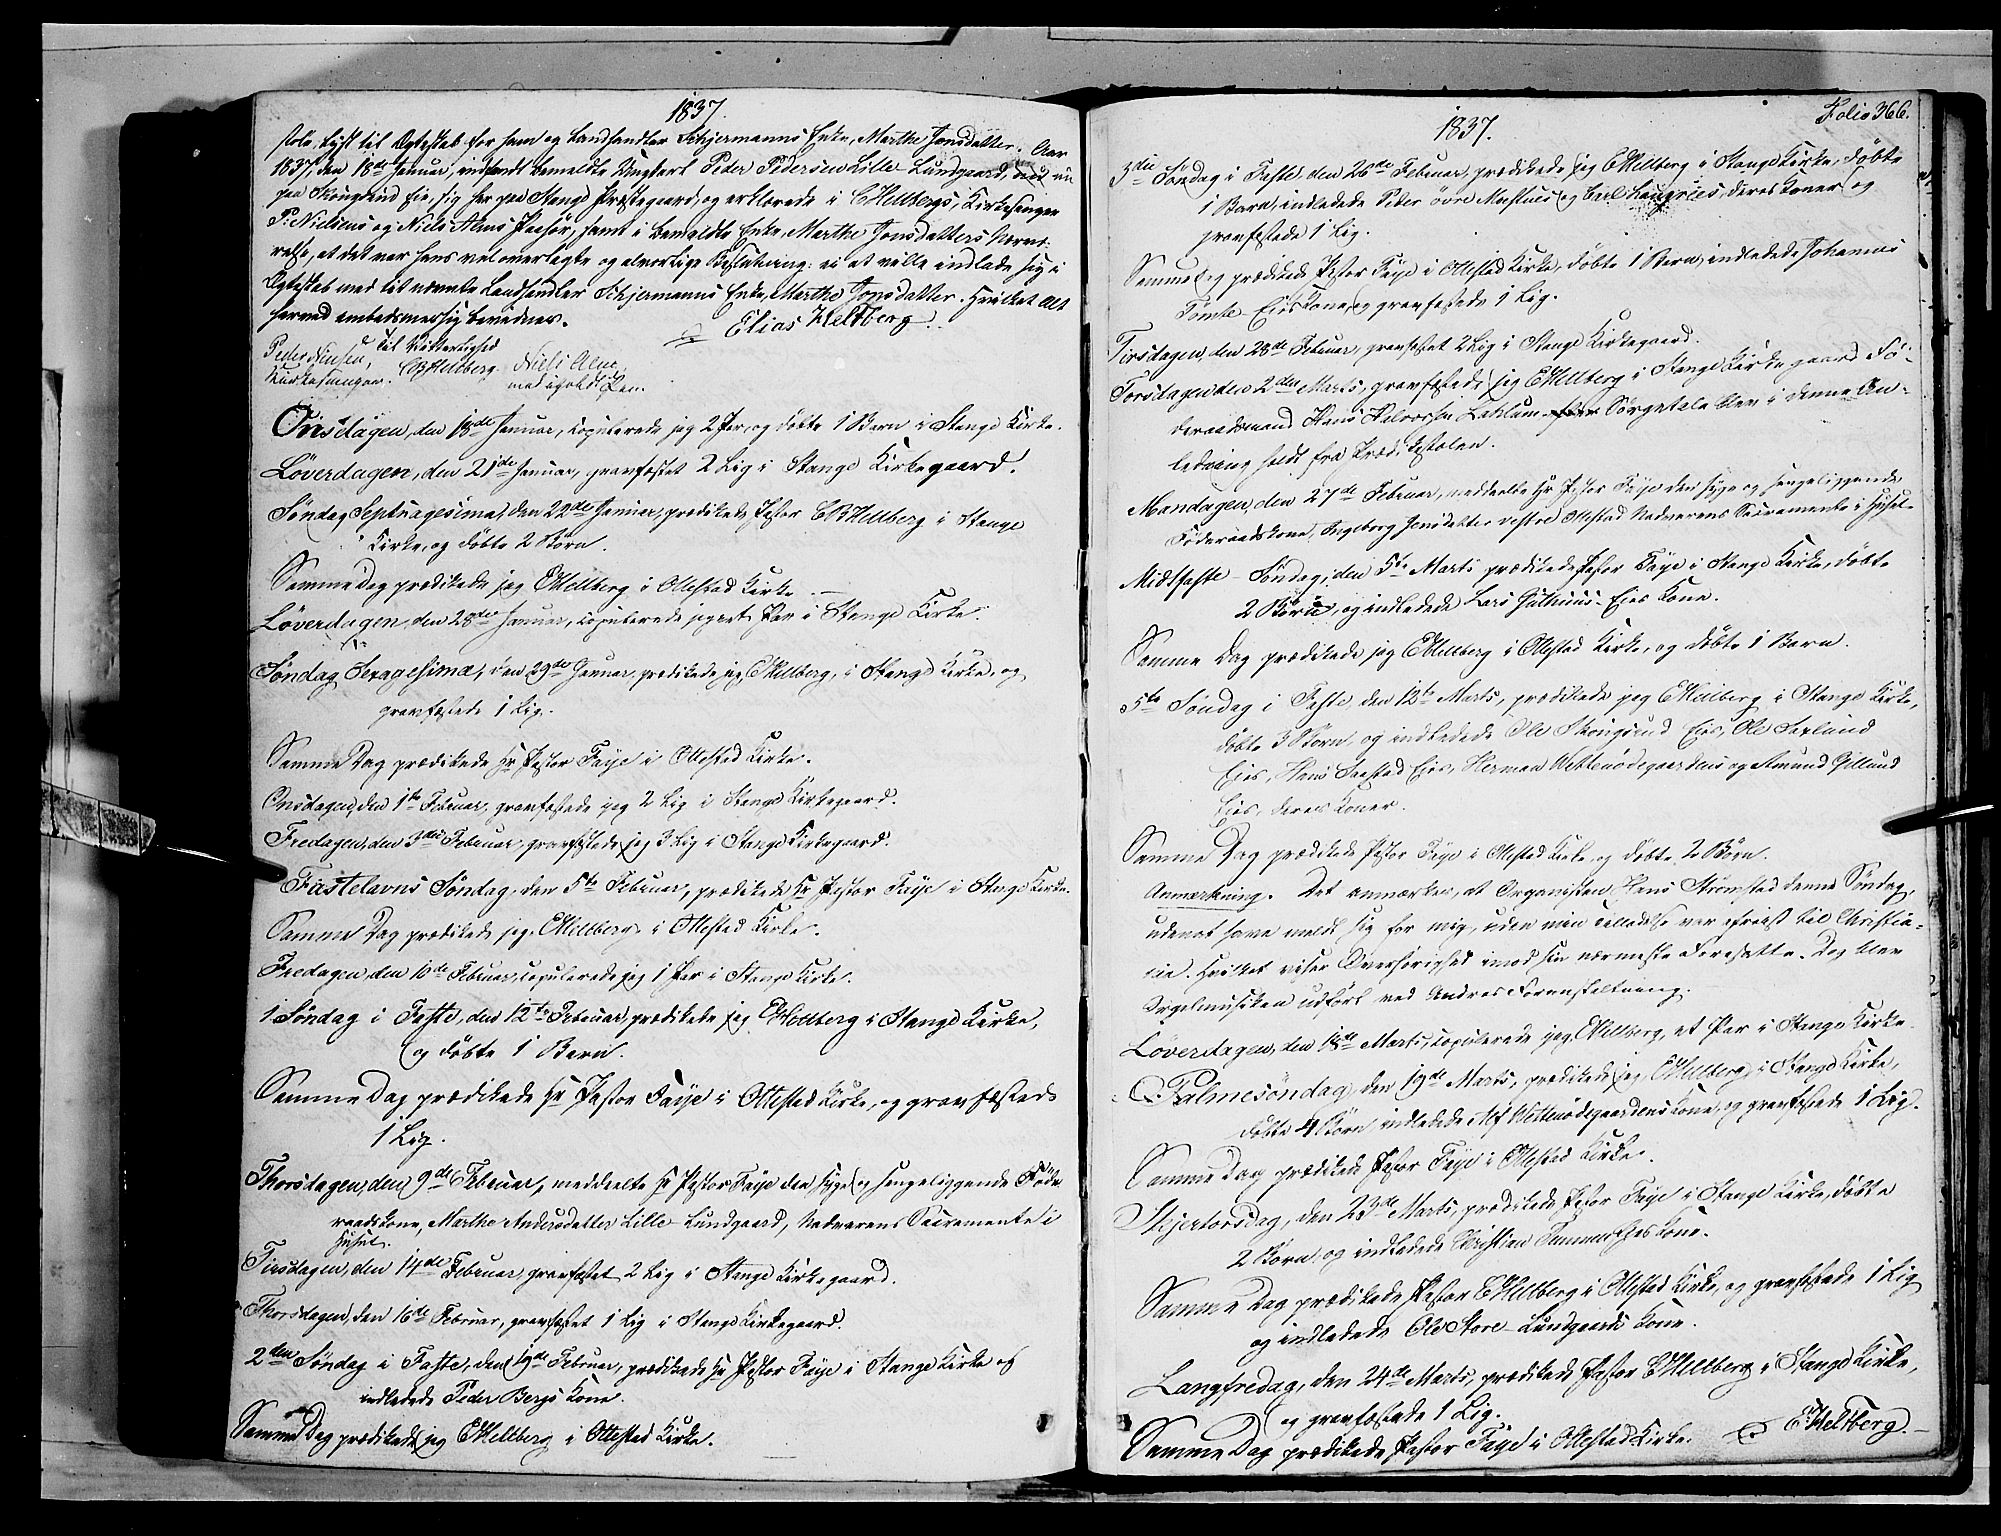 1837.
stole, lyst til Egteskab for ham og Landhandler Schjermanns Enke, Marthe Jonsdatter. Aar
1837, den 18de Januar, indfandt bemeldte Ungkarl Peder Pedersen Lille-Lundgaard, nu
paa Skougsrud Eie, sig her paa Stange Præstegaard, og erklærede i E Heltbergs, Kirkesanger
P. Nielsens og Niels Alms Paahør, samt i bemeldte Enke, Marthe Jonsdatters Nærvæ-
relse, at det var hans vel overlagte og alvorlige Beslutning: ei at ville indlade sig i
Egteskab med bemeldte Landhandler Schjermanns Enke, Marthe Jonsdatter. Hvilket Alt
herved embedsmæssig bevidnes.
Elias Heltberg.
Til Vitterlighed
Peder Nilsen, Heltberg. Niels Alm,
Kirkesanger. med iholdt Pen.
Onsdagen, den 18de Januar, copulerede jeg 2 Par, og døbte 1 Barn i Stange Kirke.
Løverdagen, den 21de Januar, gravfæstet 2 Lig i Stange Kirkegaard.
Søndag Septuagesima, den 22de Januar, prædikede Pastor Heltberg i Stange
Kirke, og døbte 2 Børn.
Samme Dag prædikede jeg EHeltberg i Ottestad Kirke.
Løverdagen, den 28de Januar, copulerede jeg et Par i Stange Kirke.
Søndag Sexagesima, den 29de Januar, prædikede jeg, EHeltberg, i Stange Kirke, og
gravfæstede 1 Lig.
Samme Dag prædikede Hr Pastor Faye i Ottestad Kirke.
Onsdagen, den 1ste Februar, gravfæstede jeg 2 Lig i Stange Kirkegaard.
Fredagen, den 3die Februar, gravfæstede jeg 3 Lig i Stange Kirkegaard.
Fastelavns Søndag, den 5te Februar, prædikede Hr Pastor Faye i Stange Kirke.
Samme Dag prædikede jeg, EHeltberg, i Ottestad Kirke.
Fredagen, den 10de Februar, copulerede jeg 1 Par i Stange Kirke.
1 Søndag i Faste, den 12te Februar, prædikede jeg EHeltberg i Stange Kirke,
og døbte 1 Barn.
Samme Dag prædikede Hr Pastor Faye i Ottestad Kirke, og gravfæstede
1 Lig.
Thorsdagen, den 9de Februar, meddeelte Hr Pastor Faye den syge og sengeliggende Føde-
raadskone, Marthe Andersdatter Lille-Lundgaard, Nadverens Sacramente i
Huset.
Tirsdagen, den 14de Februar, gravfæstet 2 Lig i Stange Kirkegaard.
Thorsdagen, den 16de Februar, gravfæstet 1 Lig i Stange Kirkegaard.
2den Søndag i Faste, den 19de Februar, prædikede Hr Pastor Faye i Stange Kirke og
indledede Peder Bergs Kone.
Samme Dag prædikede jeg EHeltberg i Ottestad Kirke.
Folio 366.
1837.
3die Søndag i Faste, den 26de Februar, prædikede jeg EHeltberg i Stange Kirke, døbte
1 Barn, indledede Peder øvre og Carl deres Koner og
gravfæstede 1 Lig.
Samme Dag prædikede Pastor Faye i Ottestad Kirke, døbte 1 Barn, indledede Johannes
Tomte Eies Kone, og gravfæstede 1 Lig.
Tirsdagen, den 28de Februar, gravfæstet 2 Lig i Stange Kirkegaard.
Torsdagen den 2den Marts, gravfæstede jeg EHeltberg i Stange Kirkegaard Fø-
deraadsmand Hans Halvorsen Laklum Sørgetale blev i denne An-
ledning holdt fra Prædikestolen.
Mandagen, den 27de Februar, meddeelte Hr Pastor Faye den syge og sengeliggende
Føderaadskone, Ingeborg Jonsdatter vestre Ottestad Nadverens Sacramente i Huset.
Midfaste-Søndag, den 5te Marts prædikede Pastor Faye i Stange Kirke, døbte
2 Børn, og indledede Lars Guthuus-Eies Kone.
Samme Dag prædikede jeg EHeltberg i Ottestad Kirke, og døbte 1 Barn.
5te Søndag i Faste, den 12te Marts, prædikede jeg EHeltberg i Stange Kirke,
døbte 3 Børn, og indledede Ole Skougsrud Eies, Ole Saxlund
Eies, Hans Saastad Eies, Herman Wettenødegaardens og Amund Gillund
Eies, deres Koner.
Samme Dag prædikede Pastor Faye i Ottestad Kirke, og døbte 2 Børn.
Anmærkning. Det anmærkes, at Organisten Hans Strømstad denne Søndag,
uden at have meldt sig for mig, uden min Tilladelse var afreist til Christia-
nia. Hvilket viser Overhørighed imod sin nærmeste Foresatte. Dog blev
Orgelmusiken udført ved Andres Foranstaltning.
Løverdagen, den 18de Marts, copulerede jeg, EHeltberg, et Par i Stange Kirke.
Palmesøndag, den 19de Marts, prædikede jeg, EHeltberg, i Stange Kirke,
døbte 4 Børn, indledede Alf Wettenødegaardens Kone, og gravfæstede 1 Lig.
Samme Dag prædikede Pastor Faye i Ottestad Kirke.
Skjertorsdag, den 23de Marts, prædikede Pastor Faye i Stange Kirke, døbte
2 Børn, og indledede Christian Eies Kone.
Samme Dag prædikede Pastor EHeltberg i Ottestad Kirke, og gravfæstede 1 Lig
og indledede Ole Store-Lundgaards Kone.
Langfredag, den 24de Marts, prædikede Pastor EHeltberg i Stange Kirke,
og gravfæstede 1 Lig.
Samme Dag prædikede Pastor Faye i Ottestad Kirke. EHeltberg.